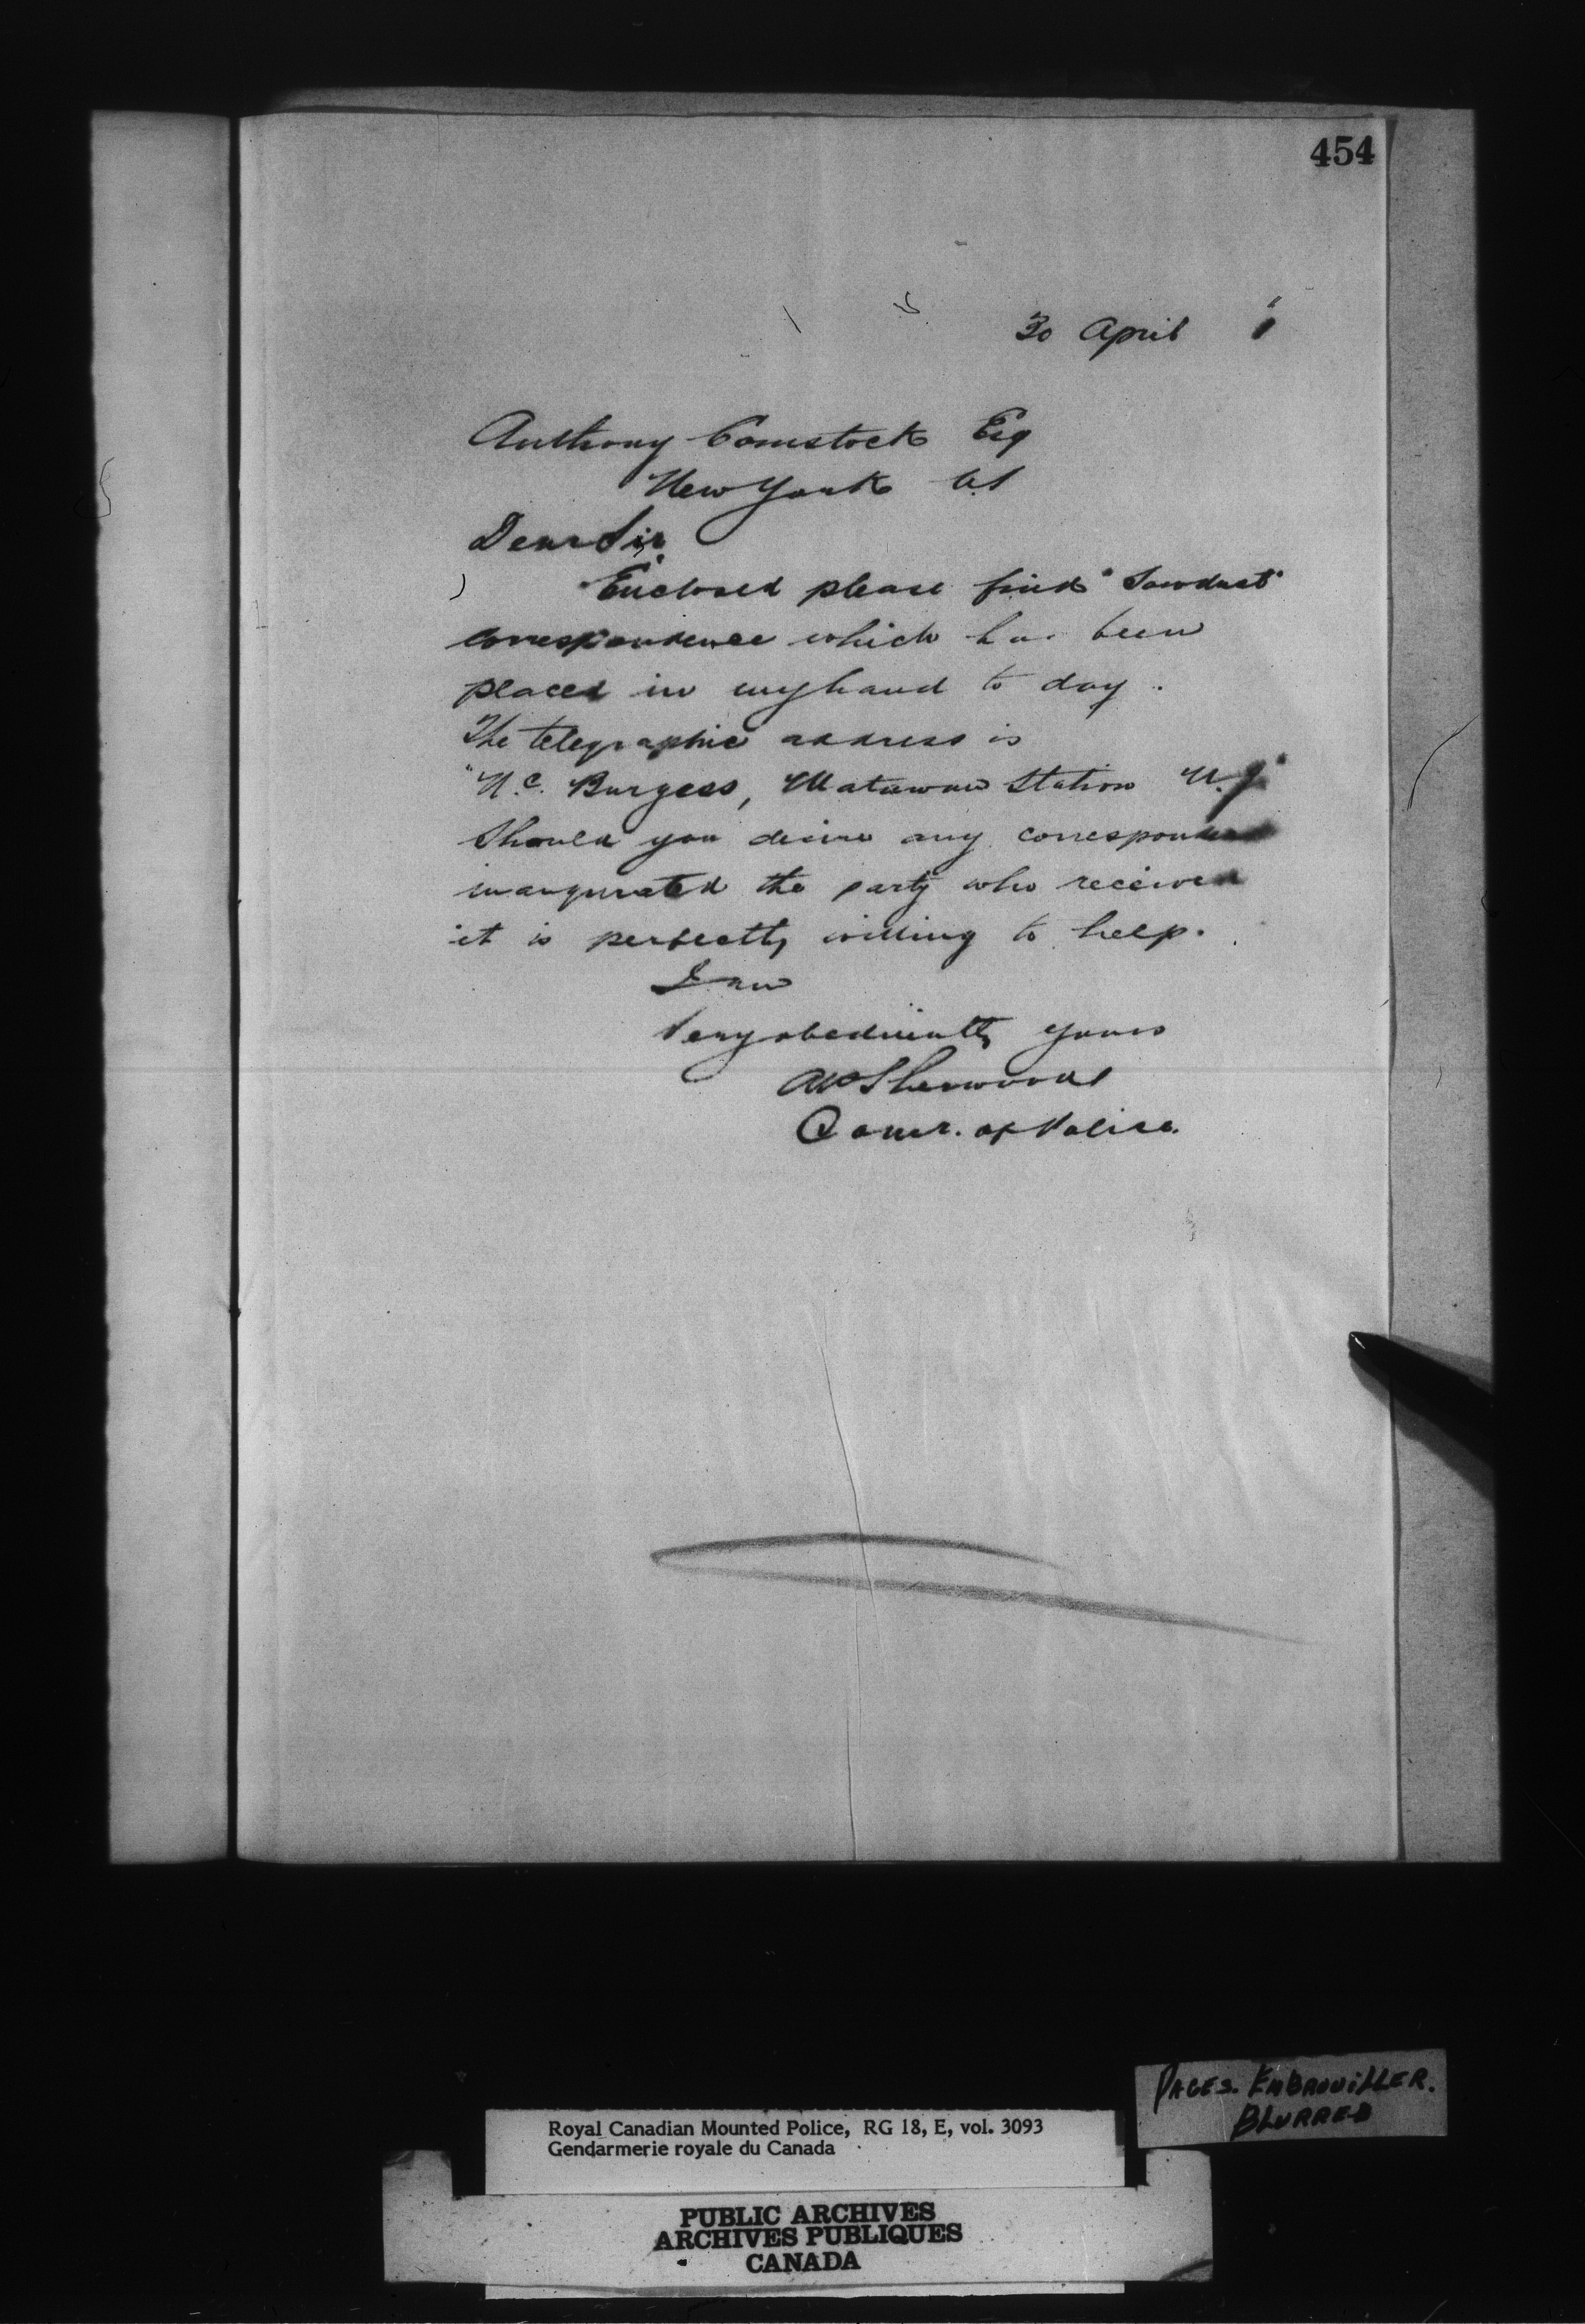 454
30 April
Anthony Comstock Esq
New York US
Dear Sir
Enclosed please find "Sawdust"
correspondence which has been
placed in my hand to day.
The telegraphic address is
"N.C. Burgess, Matawan Station N.J"
Should you desire any correspondence
inaugurated the party who received
it is perfectly willing to help.
I am
Very obediently yours
AP Sherwood
Comr. of Police.
PAGES. EMBROUILLER.
BLURRED
Royal Canadian Mounted Police, RG 18, E, vol. 3093
Gendarmerie royale du Canada
PUBLIC ARCHIVES
ARCHIVES PUBLIQUES
CANADA